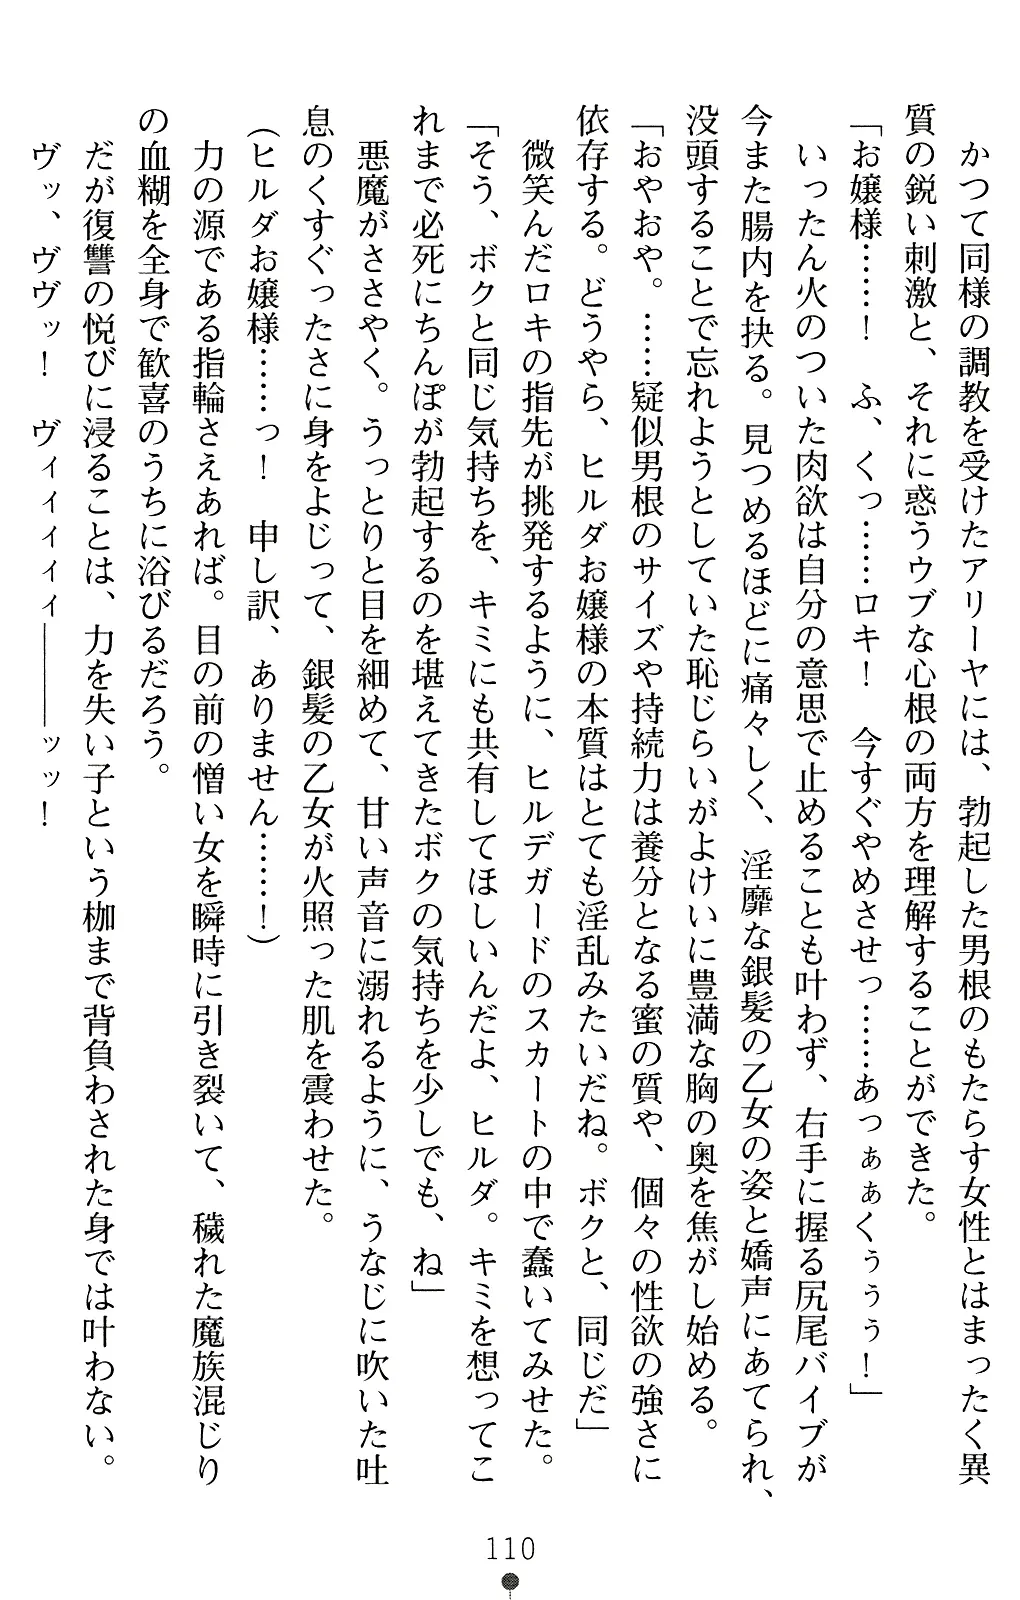 かつて同様の調教を受けたアリーヤには、勃起した男根のもたらす女性とはまったく異
質の鋭い刺激と、それに惑うウブな心根の両方を理解することができた。
「お嬢様……！　ふ、くっ……ロキ！　今すぐやめさせっ……あっぁぁくぅぅぅ！」
いったん火のついた肉欲は自分の意思で止めることも叶わず、右手に握る尻尾バイブが
今また腸内を抉る。見つめるほどに痛々しく、淫靡な銀髪の乙女の姿と嬌声にあてられ、
没頭することで忘れようとしていた恥じらいがよけいに豊満な胸の奥を焦がし始める。
「おやおや。……疑似男根のサイズや持続力は養分となる蜜の質や、個々の性欲の強さに
依存する。どうやら、ヒルダお嬢様の本質はとても淫乱みたいだね。ボクと、同じだ」
微笑んだロキの指先が挑発するように、ヒルデガードのスカートの中で蠢いてみせた。
「そう、ボクと同じ気持ちを、キミにも共有してほしいんだよ、ヒルダ。キミを想ってこ
れまで必死にちんぽが勃起するのを堪えてきたボクの気持ちを少しでも、ね」
悪魔がささやく。うっとりと目を細めて、甘い声音に溺れるように、うなじに吹いた吐
息のくすぐったさに身をよじって、銀髪の乙女が火照った肌を震わせた。
（ヒルダお嬢様……っ！　申し訳、ありません……！）
力の源である指輪さえあれば。目の前の憎い女を瞬時に引き裂いて、穢れた魔族混じり
の血糊を全身で歓喜のうちに浴びるだろう。
だが復讐の悦びに浸ることは、力を失い子という枷まで背負わされた身では叶わない。
ヴッ、ヴヴッ！　ヴィィィィ――――ッッ！
110